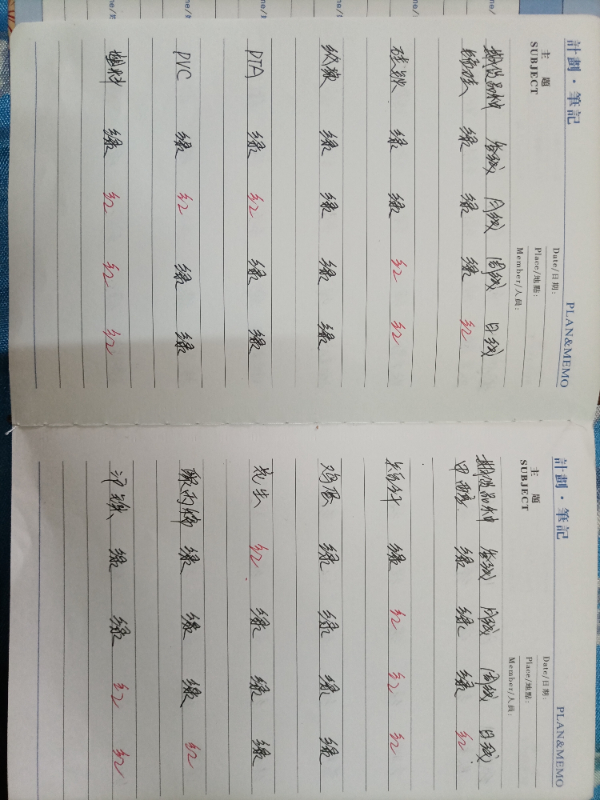 計劃・筆記 PLAN&MEMO
主題 Date/日期:
SUBJECT Place/地點:
Member/人員:
期货品种 季线 月线 周线 日线
锰硅 绿 绿 绿 红
硅铁 绿 绿 红 红
纸浆 绿 绿 绿 绿
PTA 绿 红 绿 绿
PVC 绿 红 绿 绿
塑料 绿 红 红 红
計劃・筆記 PLAN&MEMO
主題 Date/日期:
SUBJECT Place/地點:
Member/人員:
期货品种 季线 月线 周线 日线
甲醇 绿 绿 绿 红
绿 红 红 红
鸡蛋 绿 绿 绿 绿
花生 红 绿 绿 绿
聚丙烯 绿 绿 绿 红
绿 绿 红 红